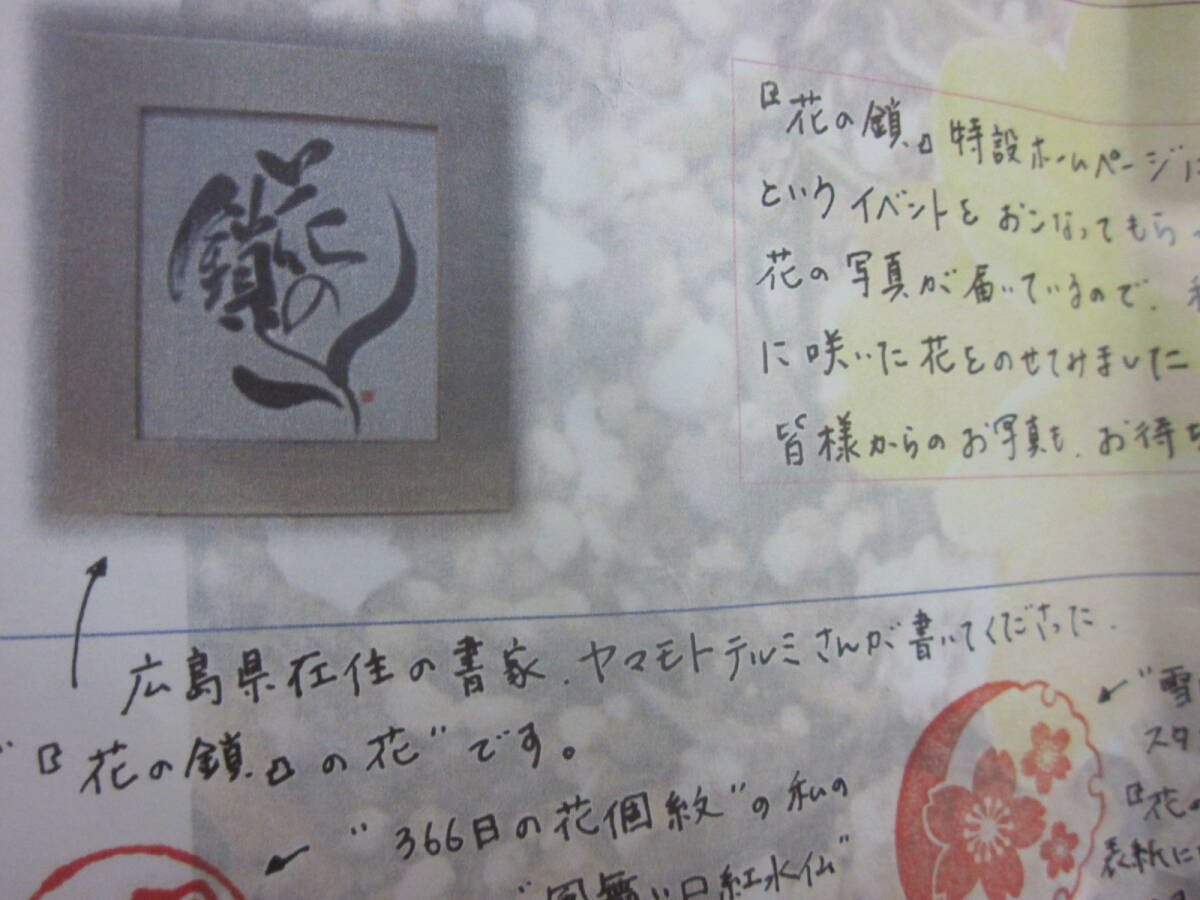 花の鎖
『花の鎖』特設ホームページに
というイベントをおこなってもらっ
花の写真が届いているので、私
に咲いた花をのせてみました
皆様からのお写真も、お待ち
広島県在住の書家、ヤマモトテルミさんが書いてくださった、
"『花の鎖』の花"です。
"366日の花個紋"の私の
"風舞い口紅水仙"
"雪
スタ
『花の
表紙に